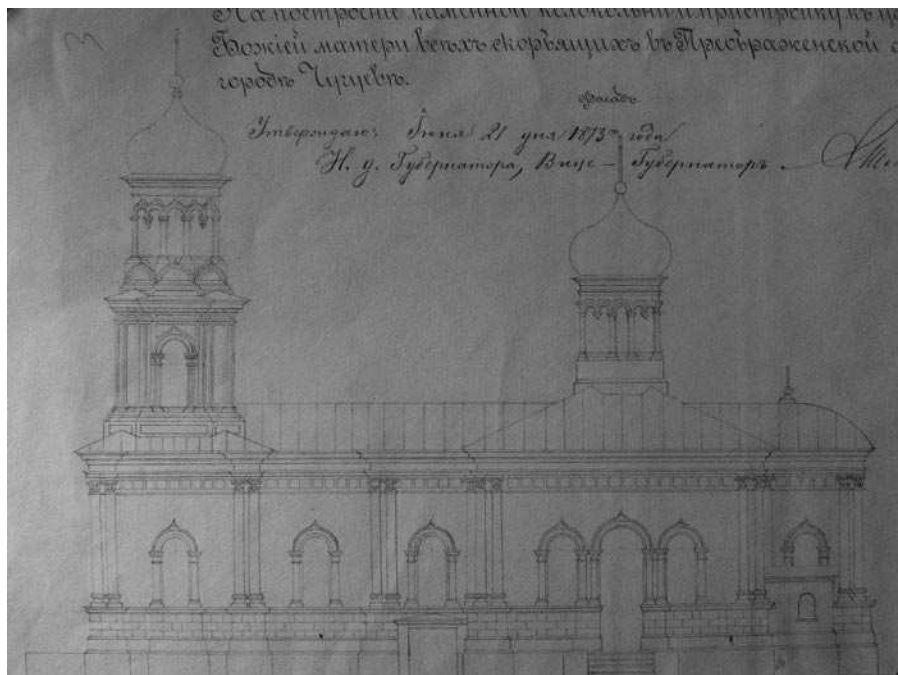 На построеніе каменной колокольни и пристройку къ
Божіей матери всѣхъ скорбящихъ въ Преображенской
городѣ Чугуевѣ.
Фасадъ
Утверждаю: Іюня 21 дня 1873го года
И. д. Губернатора, Вице-Губернаторъ